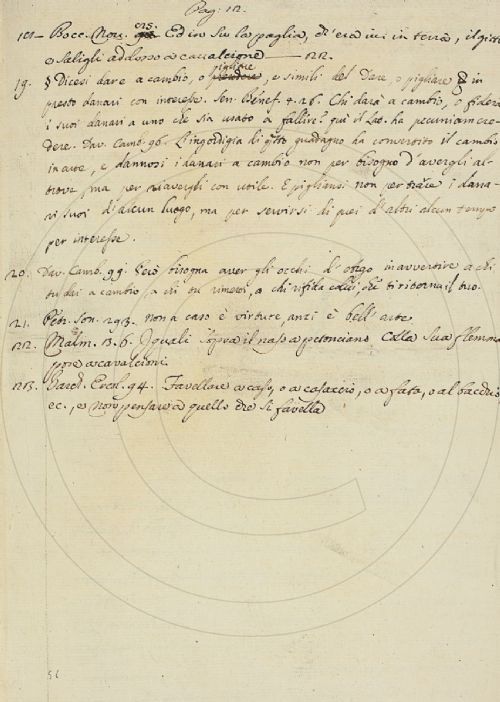 Pag: 12.
Bocc. Nov. Ed in su la paglia, ch'era ivi in terra, il gittò
e saligli addosso a cavalcione
19. § Dicesi dare a cambio, o pigliare, e simili del Dare o pigliare in
presto danari con interesse. Sen. Benef. 4. 26. Chi darà a cambio, o fiderà
i suoi danari a uno che sia usato a fallire? qui il Lat. ha pecuniam cre-
dere. Dav. Camb. 96. L'ingordigia di qsto guadagno ha convertito il cambio
in arte, e dannosi i danari a cambio non per bisogno d'avergli al-
trove, ma per riavergli con utile. E pigliansi non per trarre i dana-
ri suoi d'alcun luogo, ma per servirsi di quei d'altri alcun tempo
per interesse.
20. Dav. Camb. 99. Però bisogna aver gli occhi d'Argo in avvertire a chi
tu dai a cambio, a chi tu rimetti, a chi ti ritorna il tuo.
21. Petr. Son. 293. non a caso è virtute, anzi è bell'arte
Malm. 3. 6. I quali sopra il naso a petonciano Colla sua flemma
pose a cavalcioni.
Varch. Ercol. 94. Favellare a caso, o a casaccio, o a fata, o al bacchio
ec., è non pensare a quello che si favella
56